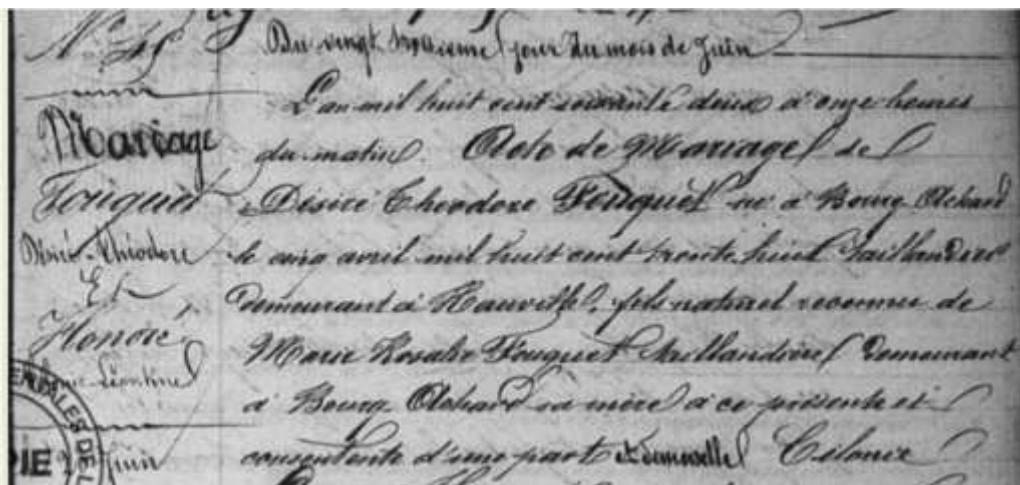 N° 45
Mariage
Fouquet
Désiré-Théodore
Et
Honoré
Léontine
Juin
Du vingt troisième jour du mois de Juin
L'an mil huit cent soixante deux à onze heures
du matin. Acte de Mariage de
Désiré Théodore Fouquet né à Bourg Achard
le cinq avril mil huit cent trente huit Taillandier
demeurant à Hauville, fils naturel reconnu de
Marie Rosalie Fouquet demeurant
à Bourg Achard sa mère à ce présente et
consentente d'une part et demoiselle